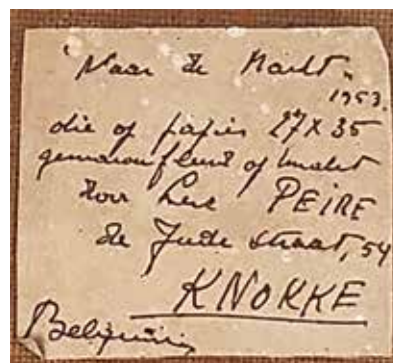 "Naar de Markt"
1953.
olie op papier 27 x 35
gemaroufleerd op unalit
door Luc PEIRE
de Judestraat, 54
KNOKKE
Belgium